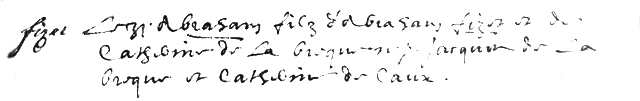 fizet Le 23 Abraham filz d'Abraham fizet et de
Catherine de La breque Jacques de La
breque et Catherine de Caux.